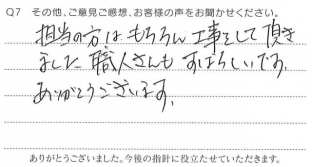 Q7 その他、ご意見ご感想、お客様の声をお聞かせください。
担当の方はもちろん工事をして頂き
ました職人さんもすばらしいです。
ありがとうございます。
ありがとうございました。今後の指針に役立たせていただきます。